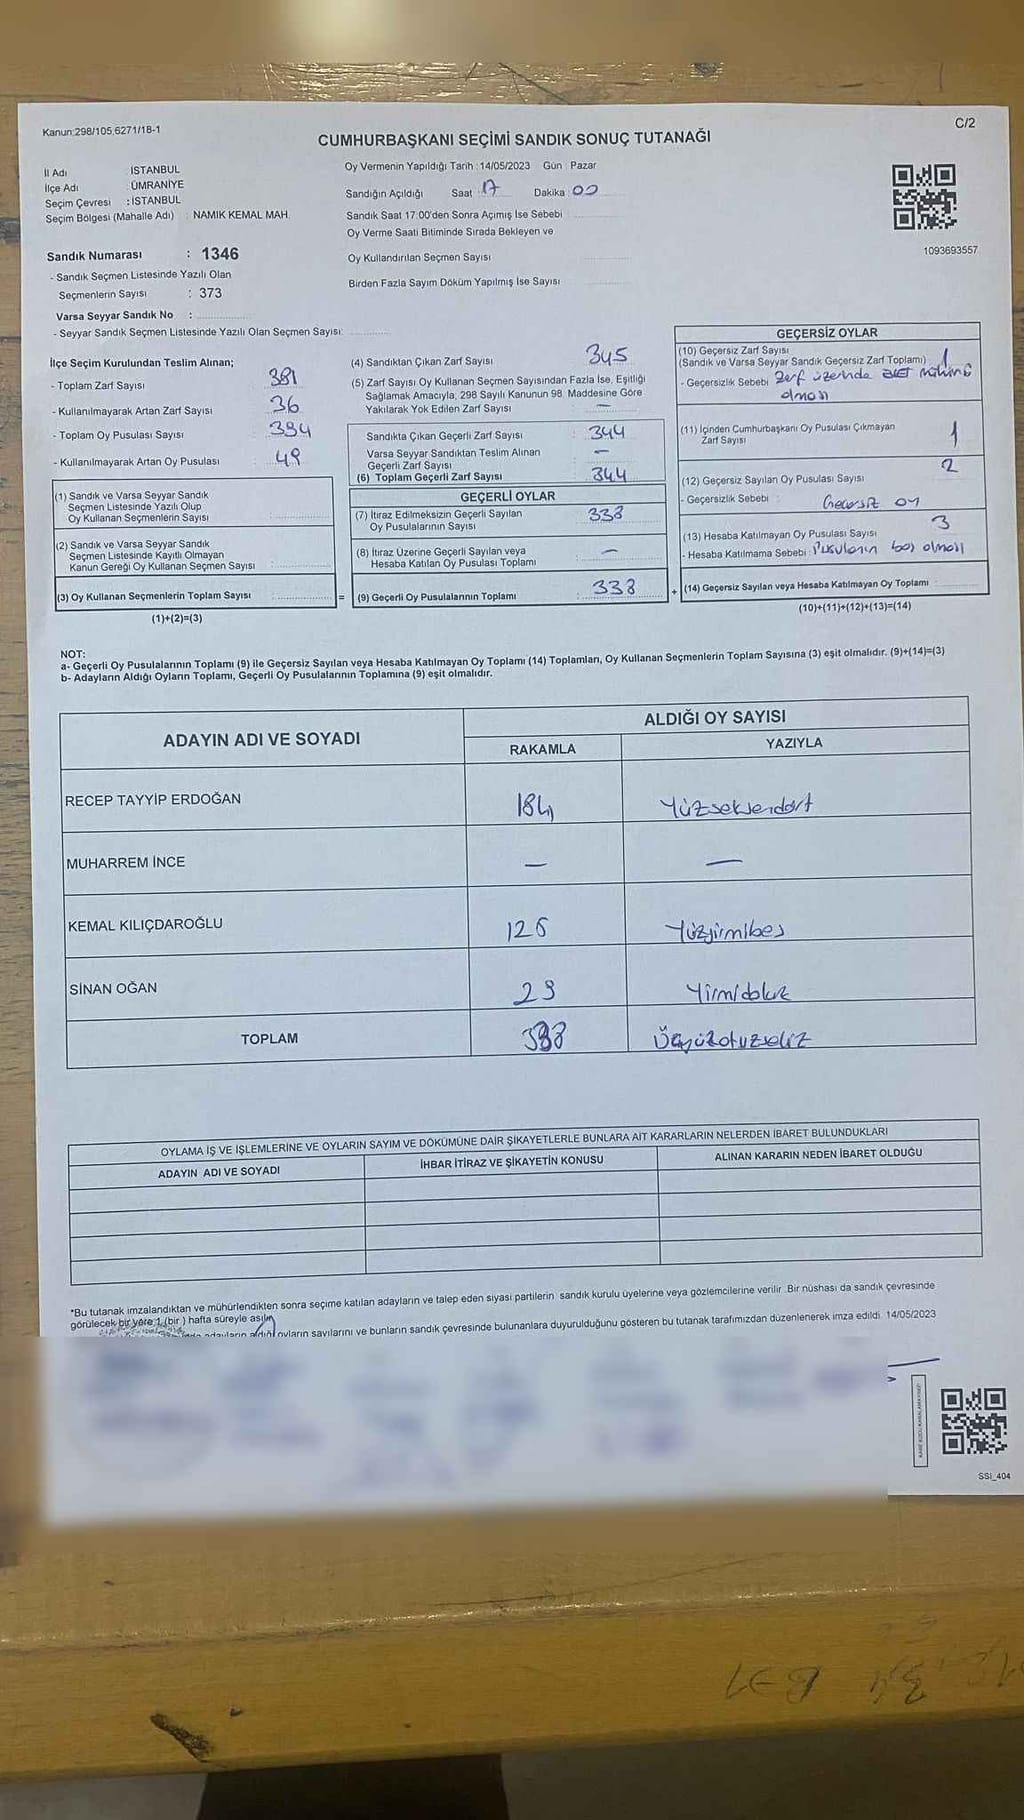 Kanun:298/105,6271/18-1
C/2
CUMHURBAŞKANI SEÇİMİ SANDIK SONUÇ TUTANAĞI
İl Adı : İSTANBUL
İlçe Adı : ÜMRANİYE
Seçim Çevresi : İSTANBUL
Seçim Bölgesi (Mahalle Adı) : NAMIK KEMAL MAH.
Oy Vermenin Yapıldığı Tarih : 14/05/2023 Gün : Pazar
Sandığın Açıldığı Saat 17 Dakika 00
Sandık Saat 17:00'den Sonra Açımış İse Sebebi
Oy Verme Saati Bitiminde Sırada Bekleyen ve
Oy Kullandırılan Seçmen Sayısı
Birden Fazla Sayım Döküm Yapılmış İse Sayısı
1093693557
Sandık Numarası : 1346
- Sandık Seçmen Listesinde Yazılı Olan
Seçmenlerin Sayısı : 373
Varsa Seyyar Sandık No :
- Seyyar Sandık Seçmen Listesinde Yazılı Olan Seçmen Sayısı:
İlçe Seçim Kurulundan Teslim Alınan;
- Toplam Zarf Sayısı 381
- Kullanılmayarak Artan Zarf Sayısı 36
- Toplam Oy Pusulası Sayısı 394
- Kullanılmayarak Artan Oy Pusulası 49
(1) Sandık ve Varsa Seyyar Sandık
Seçmen Listesinde Yazılı Olup
Oy Kullanan Seçmenlerin Sayısı
(2) Sandık ve Varsa Seyyar Sandık
Seçmen Listesinde Kayıtlı Olmayan
Kanun Gereği Oy Kullanan Seçmen Sayısı
(3) Oy Kullanan Seçmenlerin Toplam Sayısı
(1)+(2)=(3)
=
(4) Sandıktan Çıkan Zarf Sayısı 345
(5) Zarf Sayısı Oy Kullanan Seçmen Sayısından Fazla İse, Eşitliği
Sağlamak Amacıyla, 298 Sayılı Kanunun 98. Maddesine Göre
Yakılarak Yok Edilen Zarf Sayısı : —
Sandıkta Çıkan Geçerli Zarf Sayısı : 344
Varsa Seyyar Sandıktan Teslim Alınan
Geçerli Zarf Sayısı —
(6) Toplam Geçerli Zarf Sayısı : 344
GEÇERLİ OYLAR
(7) İtiraz Edilmeksizin Geçerli Sayılan
Oy Pusulalarının Sayısı : 338
(8) İtiraz Üzerine Geçerli Sayılan veya
Hesaba Katılan Oy Pusulası Toplamı : —
(9) Geçerli Oy Pusulalarının Toplamı : 338
+
GEÇERSİZ OYLAR
(10) Geçersiz Zarf Sayısı
(Sandık ve Varsa Seyyar Sandık Geçersiz Zarf Toplamı) 1
- Geçersizlik Sebebi : Zarf üzerinde mührü
olması
(11) İçinden Cumhurbaşkanı Oy Pusulası Çıkmayan
Zarf Sayısı 1
(12) Geçersiz Sayılan Oy Pusulası Sayısı 2
- Geçersizlik Sebebi : Geçersiz oy
(13) Hesaba Katılmayan Oy Pusulası Sayısı 3
- Hesaba Katılmama Sebebi : Pusulanın boş olması
(14) Geçersiz Sayılan veya Hesaba Katılmayan Oy Toplamı :
(10)+(11)+(12)+(13)=(14)
NOT:
a- Geçerli Oy Pusulalarının Toplamı (9) ile Geçersiz Sayılan veya Hesaba Katılmayan Oy Toplamı (14) Toplamları, Oy Kullanan Seçmenlerin Toplam Sayısına (3) eşit olmalıdır. (9)+(14)=(3)
b- Adayların Aldığı Oyların Toplamı, Geçerli Oy Pusulalarının Toplamına (9) eşit olmalıdır.
ADAYIN ADI VE SOYADI
ALDIĞI OY SAYISI
RAKAMLA YAZIYLA
RECEP TAYYİP ERDOĞAN 184 Yüzseksendört
MUHARREM İNCE — —
KEMAL KILIÇDAROĞLU 125 Yüzyirmibeş
SİNAN OĞAN 29 Yirmidokuz
TOPLAM 338 Üçyüzotuzsekiz
OYLAMA İŞ VE İŞLEMLERİNE VE OYLARIN SAYIM VE DÖKÜMÜNE DAİR ŞİKAYETLERLE BUNLARA AİT KARARLARIN NELERDEN İBARET BULUNDUKLARI
ADAYIN ADI VE SOYADI İHBAR İTİRAZ VE ŞİKAYETİN KONUSU ALINAN KARARIN NEDEN İBARET OLDUĞU
*Bu tutanak imzalandıktan ve mühürlendikten sonra seçime katılan adayların ve talep eden siyasi partilerin sandık kurulu üyelerine veya gözlemcilerine verilir. Bir nüshası da sandık çevresinde
görülecek bir yere 1 (bir ) hafta süreyle asılır.
adayların aldığı oyların sayılarını ve bunların sandık çevresinde bulunanlara duyurulduğunu gösteren bu tutanak tarafımızdan düzenlenerek imza edildi. 14/05/2023
SSI_404